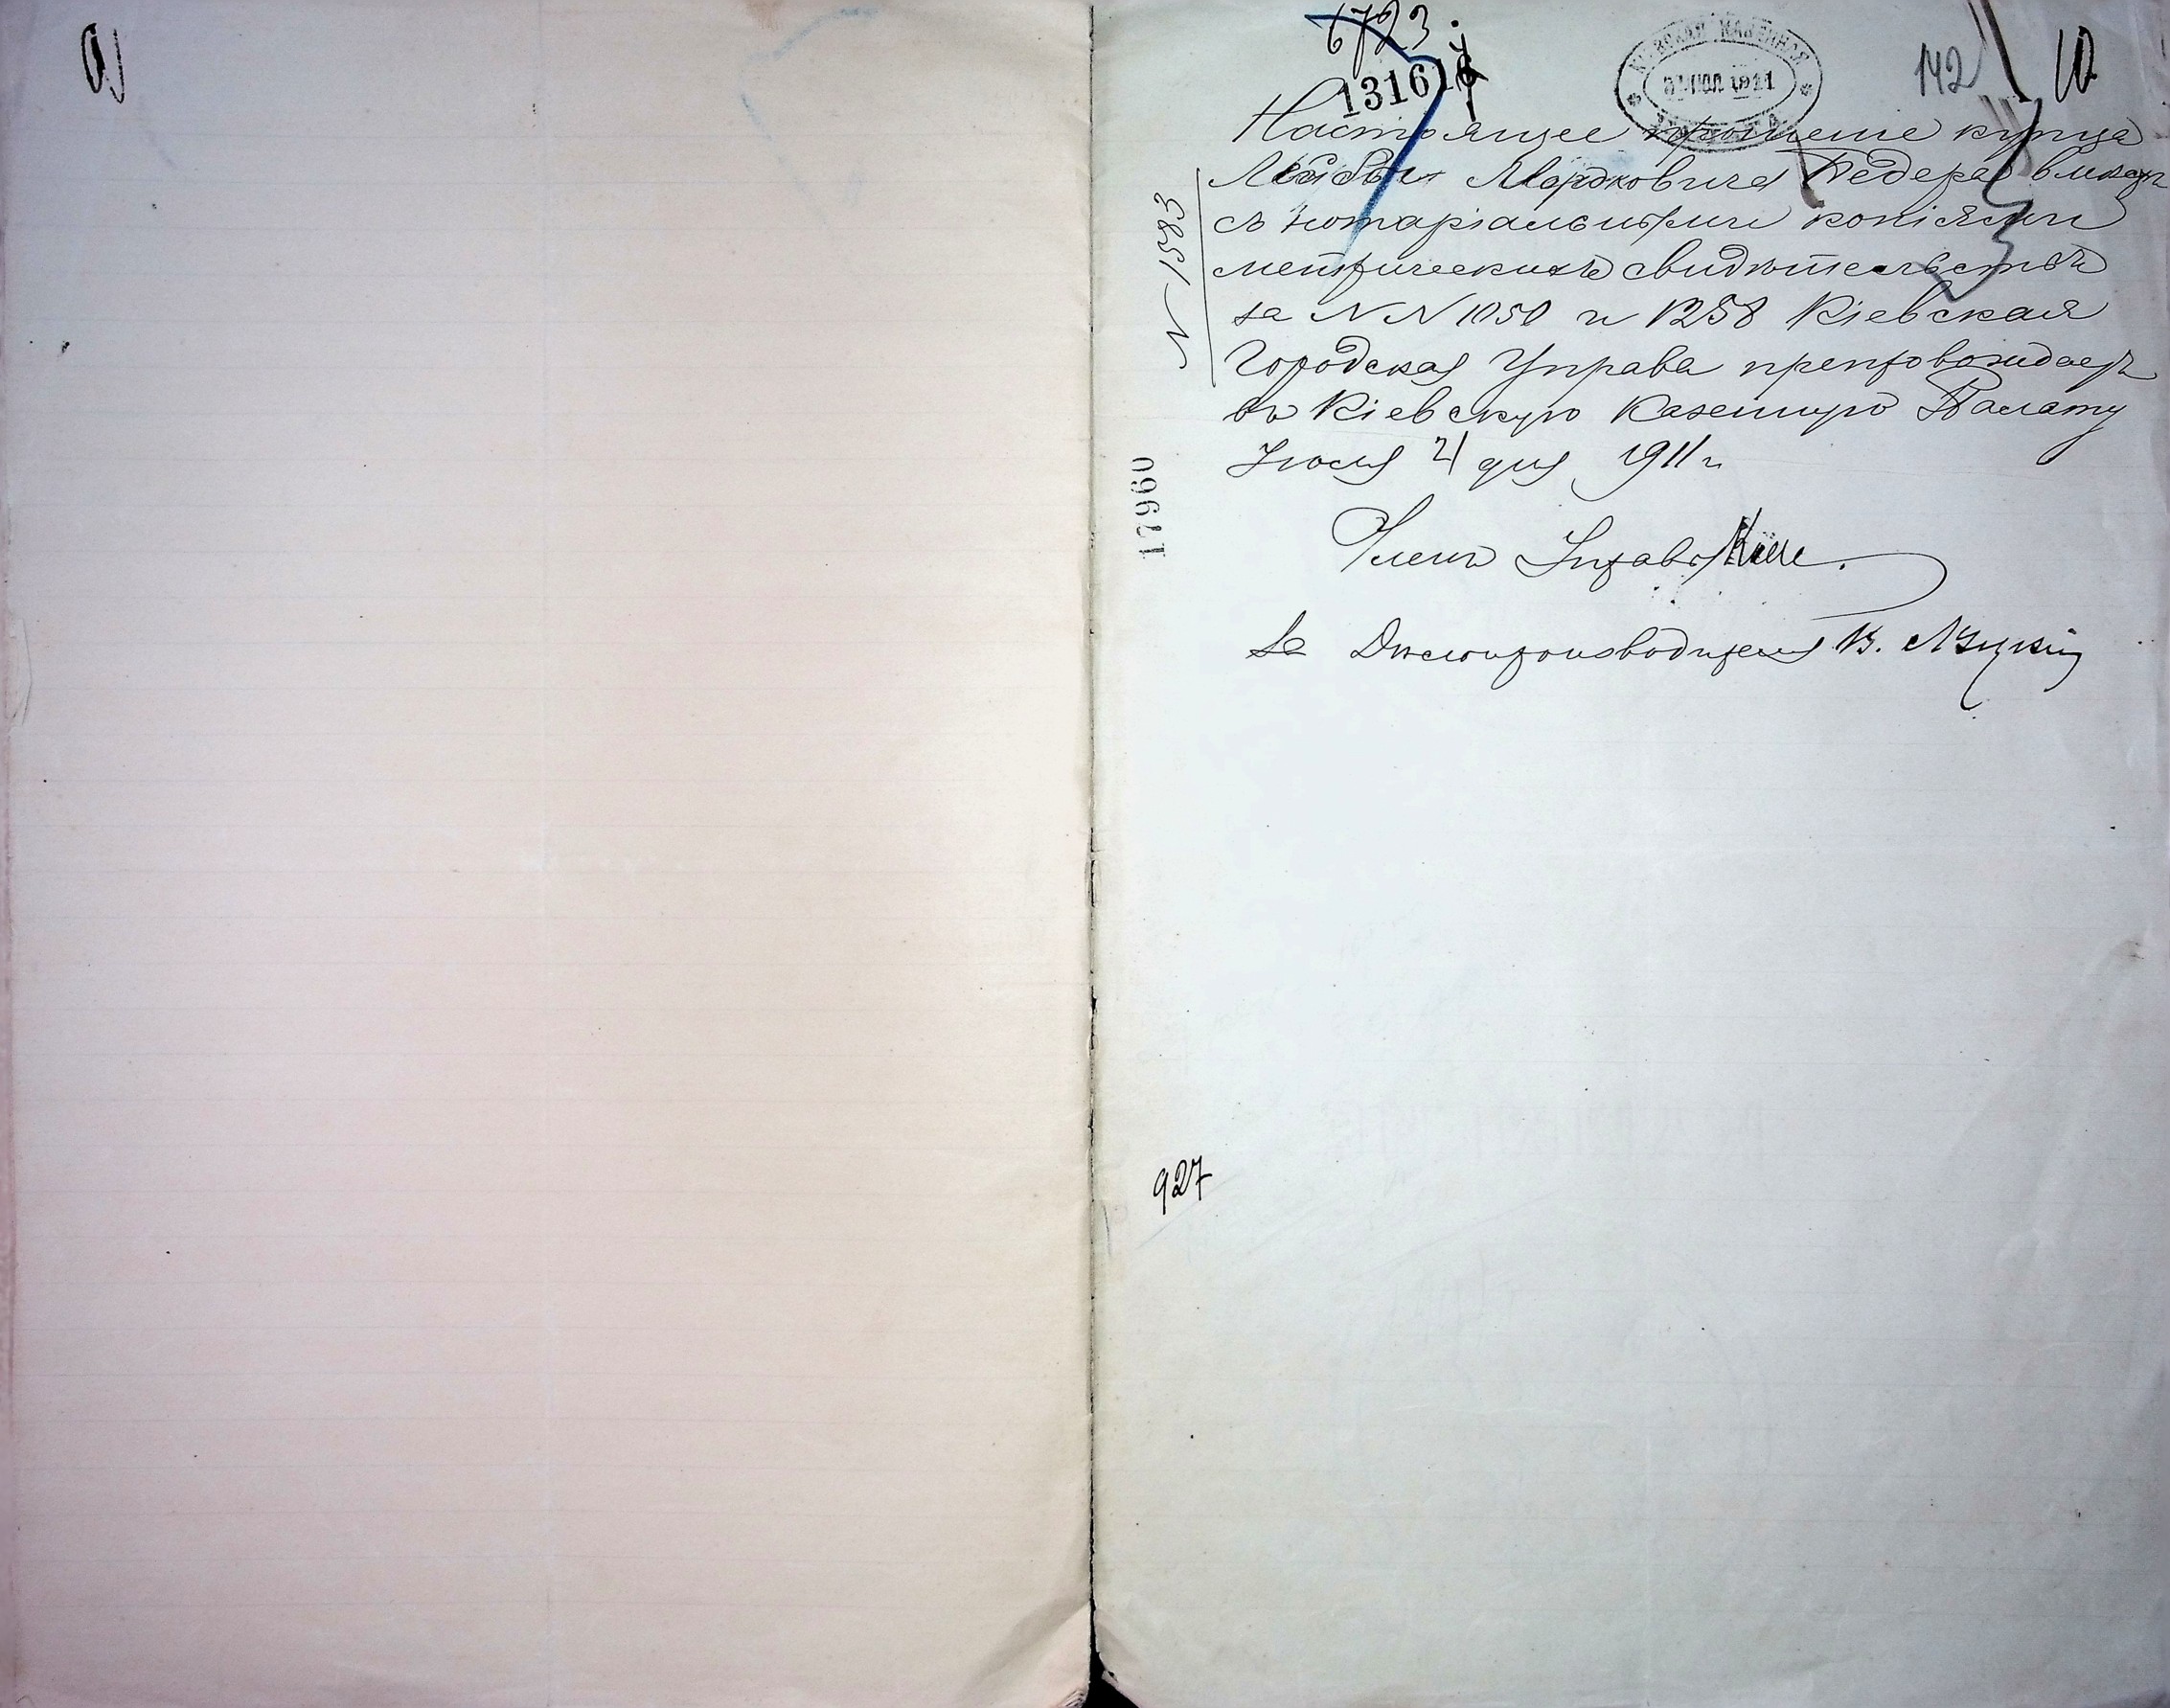 6723
131616
КІЕВСКАЯ КАЗЕННАЯ
ІЮЛ 1911
142
10
Настоящее прошеніе купца
Лейбы Мордковича Педера вмѣстѣ
съ нотаріальными копіями
метрическихъ свидѣтельствъ
за NN 1050 и 1258 Кіевская
Городская Управа препровождаетъ
въ Кіевскую Казенную Палату
Іюля 21 дня 1911 г.
N 1583
17960
Членъ Управы
За Дѣлопроизводителя В.
927